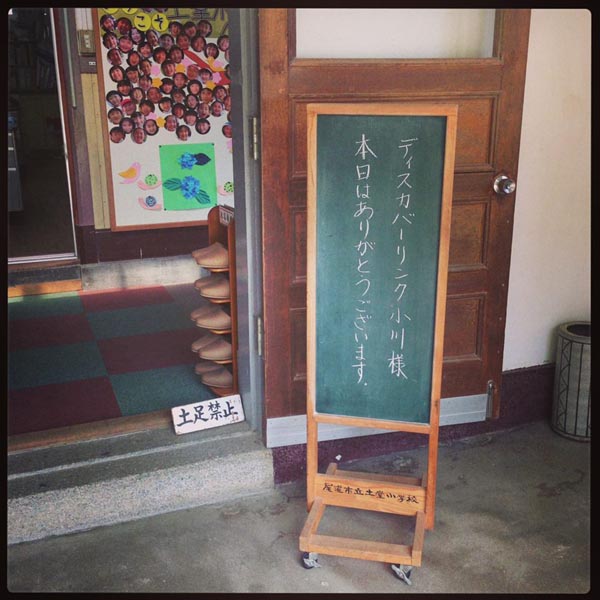 こそ
ディスカバーリンク小川様
本日はありがとうございます.
土足禁止
尾道市立土堂小学校